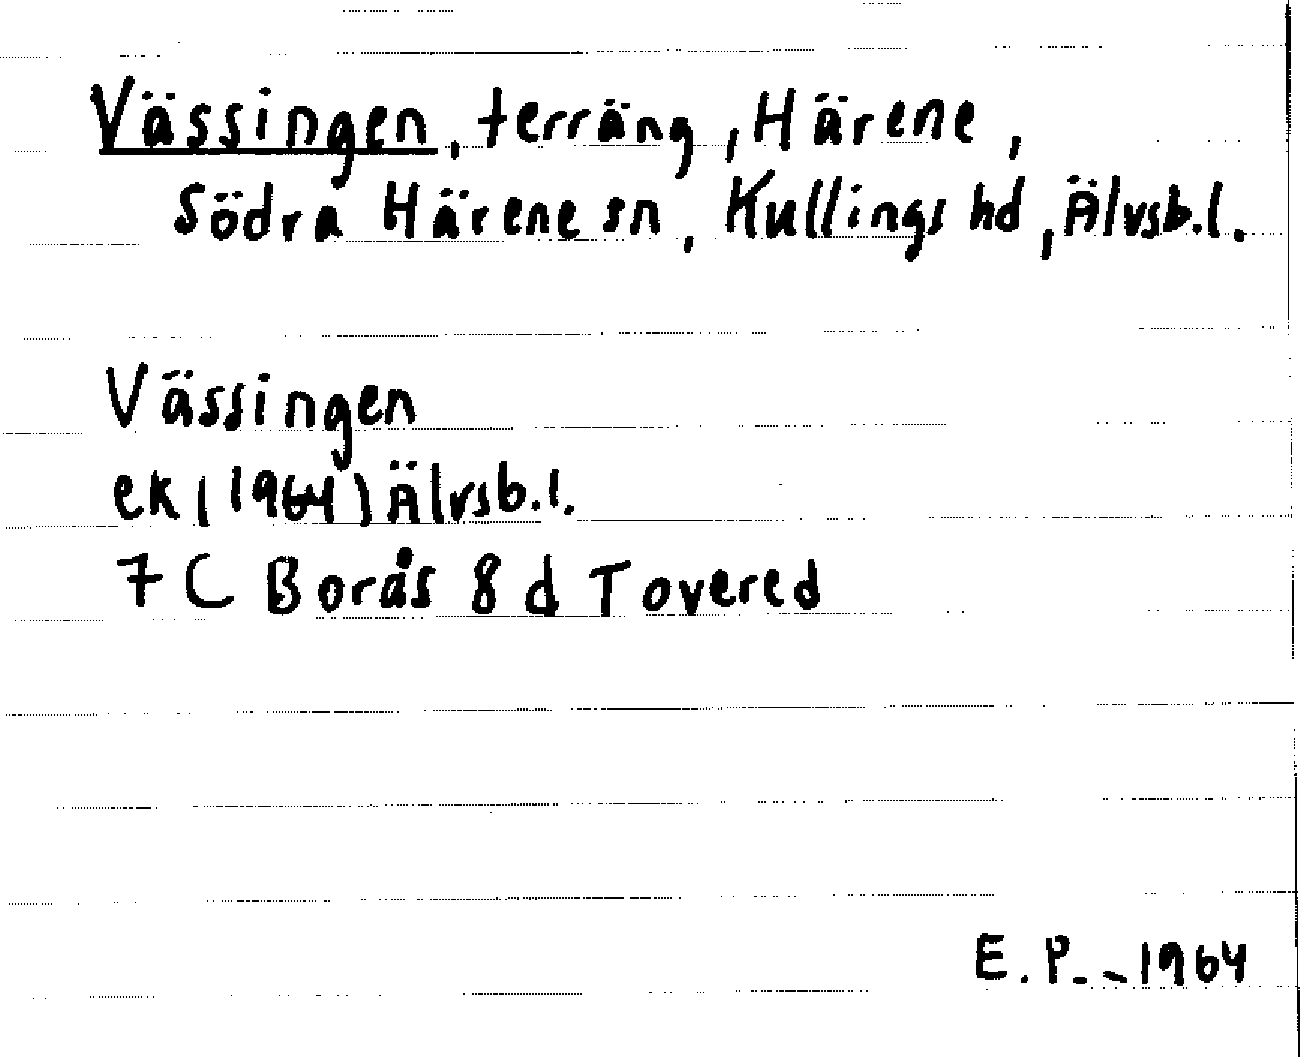 Vässingen, terräng, Härene,
Södra Härene sn, Kullings hd, Älvsb.l.
Vässingen
ek (1964) Älvsb.l.
7 C Borås 8 d Tovered
E.P. - 1964